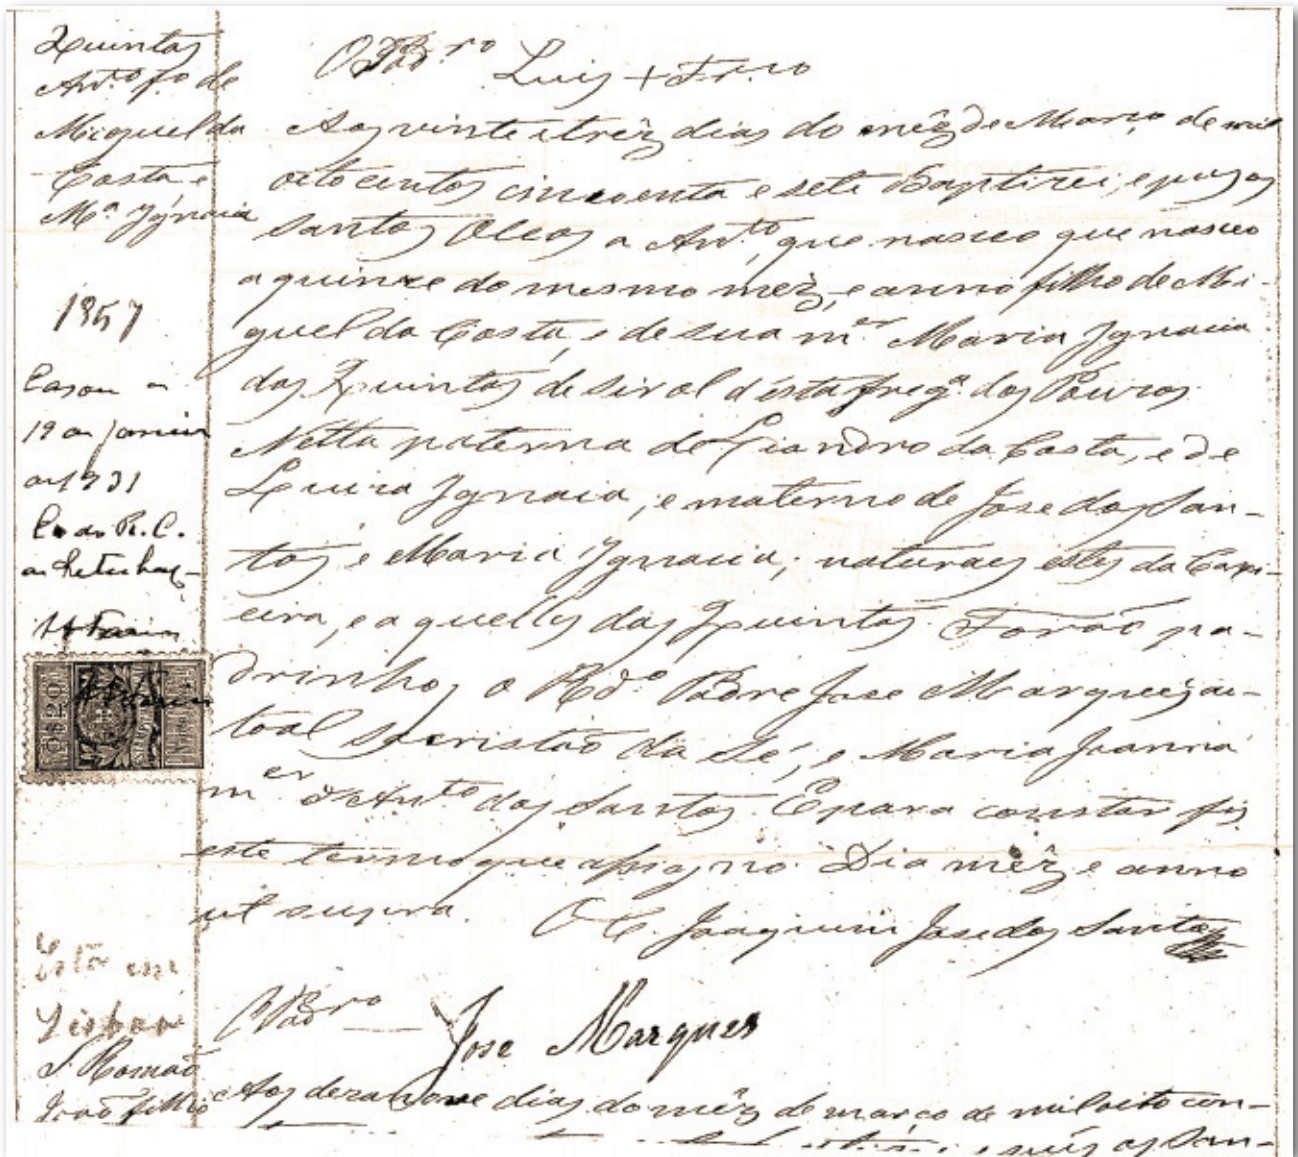 Quintas
Ant.º f.º de
Miguel da
Costa e
Mª Ygnacia
1857
Casou a
19 de Janeiro
de 1931
C. do R. C.
O Padr.º Luiz + Fr.co
Aos vinte e trêz dias do mêz de Março de mil
oito centos cincoenta e sete Baptizei, e puz os
santos Oleos a Ant.º, que nasceo que nasceo
a quinze do mesmo mêz, e anno filho de Mi-
guel da Costa, e de sua m.er Maria Ygnacia
das Quintas de Sirol d'esta freg.ª dos Pouzos.
Netto paterna de Liandro da Costa, e de
Luiza Ygnacia, e materno de Jose dos San-
tos e Maria Ygnacia, naturaes estes da
eira, e aquelles das Quintas. Foraõ pa-
drinhos o Rdº Padre Jose Marques, au-
toal sacristaõ da Sé, e Maria Joanna
m.er d'Ant.to dos Santos. E para constar fiz
este termo que assigno. Dia mêz e anno
ut supra. O C. Joaquim Jose dos Santos
O Padr.º Jose Marques
Está em
Lisboa
S. Romaõ
Joaõ filho
Aos dezanove dias do mêz de março de mil oito cen-